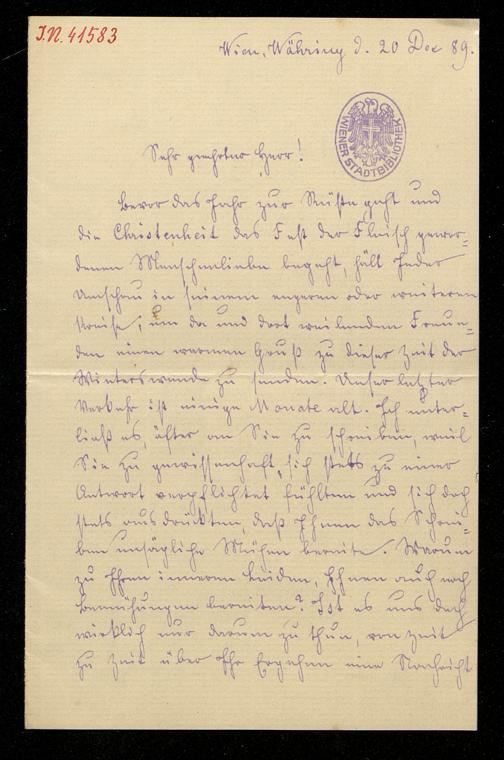 I.N. 41583
Wien, Währing d. 20 Dex 89.
WIENER STADTBIBLIOTHEK
Sehr geehrter Herr!
Bevor das Jahr zur Rüste geht und
die Christenheit das Fest der Fleisch gewor-
denen Menschenliebe begeht, hält Jeder
Umschau in seinem engeren oder weiteren
Kreise, um da und dort weilenden Freun-
den einen warmen Gruß zu dieser Zeit der
Winterswende zu senden. Unser letzter
Verkehr ist einige Monate alt. Ich unter-
ließ es, öfter an Sie zu schreiben, weil
Sie zu gewissenhaft, sich stets zu einer
Antwort verpflichtet fühlten und sich doch
stets ausdrückten, daß Ihnen das Schrei-
ben unsägliche Mühen bereite. Warum
zu Ihren inneren Leiden, Ihnen auch noch
Bemühungen bereiten? Ist es uns doch
wirklich nur darum zu thun, von Zeit
zu Zeit über Ihr Ergehen eine Nachricht